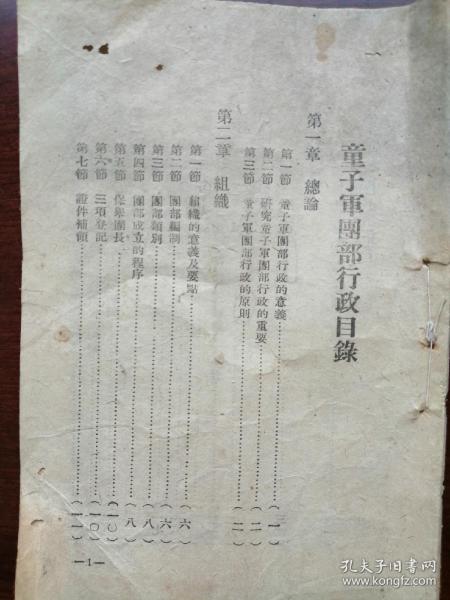 童子軍團部行政目錄
第一章 總論
第一節 童子軍團部行政的意義…………(一)
第二節 研究童子軍團部行政的重要…………(二)
第三節 童子軍團部行政的原則…………(二)
第二章 組織
第一節 組織的意義及要點…………(六)
第二節 團部編制…………(六)
第三節 團部類別…………(八)
第四節 團部成立的程序…………(八)
第五節 保舉團長…………(一〇)
第六節 三項登記…………(一〇)
第七節 證件補領…………(一一)
—1—
孔夫子旧书网